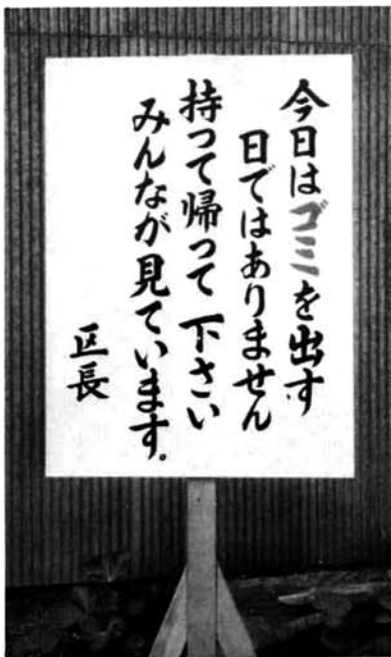 今日はゴミを出す
日ではありません
持って帰って下さい
みんなが見ています。
区長